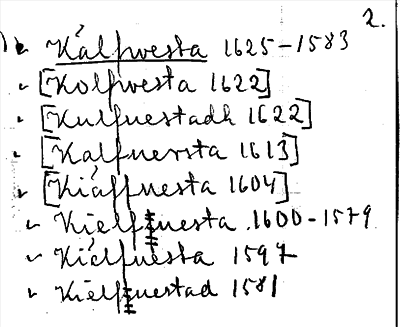 2.
Kålfwesta 1625-1583
[Kolfwesta 1622]
[Kulfuestadh 1622]
[Kalfuersta 1613]
[Kiåffuesta 1604]
Kielffuesta 1600-1579
Kiälfuesta 1597
Kielffuestad 1581